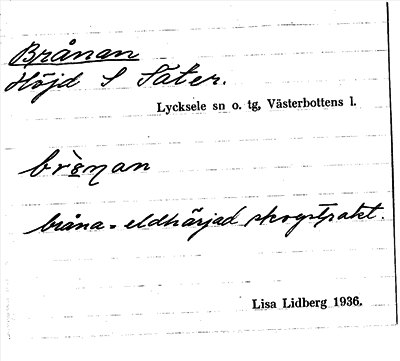 Brånan
Höjd S Fäter.
Lycksele sn o. tg, Västerbottens l.
bråna = eldhärjad skogstrakt.
Lisa Lidberg 1936.